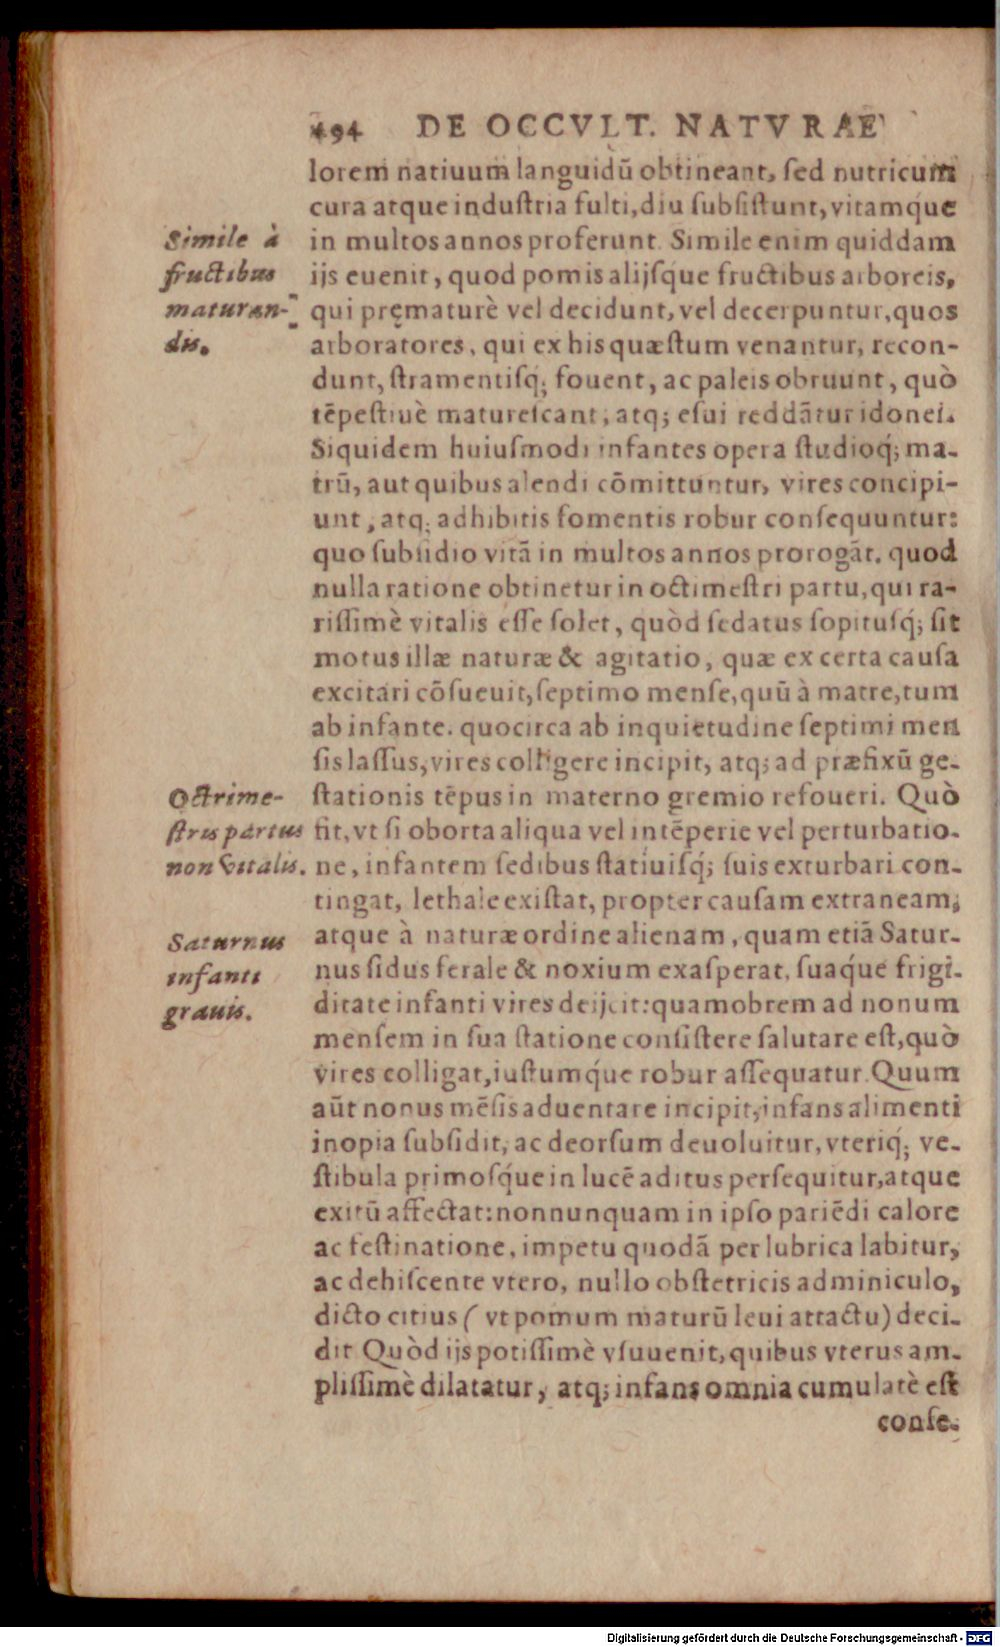 494 DE OCCVLT. NATVRAE
lorem natiuum languidū obtineant, ſed nutricum
cura atque induſtria fulti, diu ſubſiſtunt, vitamque
in multos annos proferunt. Simile enim quiddam
ijs euenit, quod pomis alijſque fructibus arboreis,
qui pręmaturè vel decidunt, vel decerpuntur, quos
arboratores, qui ex his quæſtum venantur, recon-
dunt, ſtramentiſq́; fouent, ac paleis obruunt, quò
tēpeſtiuè matureſcant, atq; eſui reddātur idonei.
Siquidem huiuſmodi infantes opera ſtudioq́; ma-
trū, aut quibus alendi cōmittuntur, vires concipi-
unt, atq; adhibitis fomentis robur conſequuntur:
quo ſubſidio vitā in multos annos prorogāt. quod
nulla ratione obtinetur in octimeſtri partu, qui ra-
riſſimè vitalis eſſe ſolet, quòd ſedatus ſopituſq́; ſit
motus illæ naturæ & agitatio, quæ ex certa cauſa
excitari cōſueuit, ſeptimo menſe, quū à matre, tum
ab infante. quocirca ab inquietudine ſeptimi men
ſis laſſus, vires colligere incipit, atq; ad præfixū ge-
ſtationis tēpus in materno gremio refoueri. Quò
fit, vt ſi oborta aliqua vel intēperie vel perturbatio-
ne, infantem ſedibus ſtatiuiſq́; ſuis exturbari con-
tingat, lethale exiſtat, propter cauſam extraneam,
atque à naturæ ordine alienam, quam etiā Satur-
nus ſidus ferale & noxium exaſperat, ſuaq́ue frigi-
ditate infanti vires deijcit: quamobrem ad nonum
menſem in ſua ſtatione conſiſtere ſalutare eſt, quò
vires colligat, iuſtumq́ue robur aſſequatur. Quum
aūt nonus mēſis aduentare incipit, infans alimenti
inopia ſubſidit, ac deorſum deuoluitur, vteriq́; ve-
ſtibula primoſq́ue in lucē aditus perſequitur, atque
exitū affectat: nonnunquam in ipſo pariēdi calore
ac feſtinatione, impetu quodā per lubrica labitur,
ac dehiſcente vtero, nullo obſtetricis adminiculo,
dicto citius ( vt pomum maturū leui attactu) deci-
dit Quòd ijs potiſſimè vſuuenit, quibus vterus am-
pliſſimè dilatatur, atq; infans omnia cumulatè eſt
conſe-
Simile à
fructibus
maturan-
dis.
Octrime-
ſtris partus
non vitalis.
Saturnus
infanti
grauis.
Digitalisierung gefördert durch die Deutsche Forschungsgemeinschaft - DFG